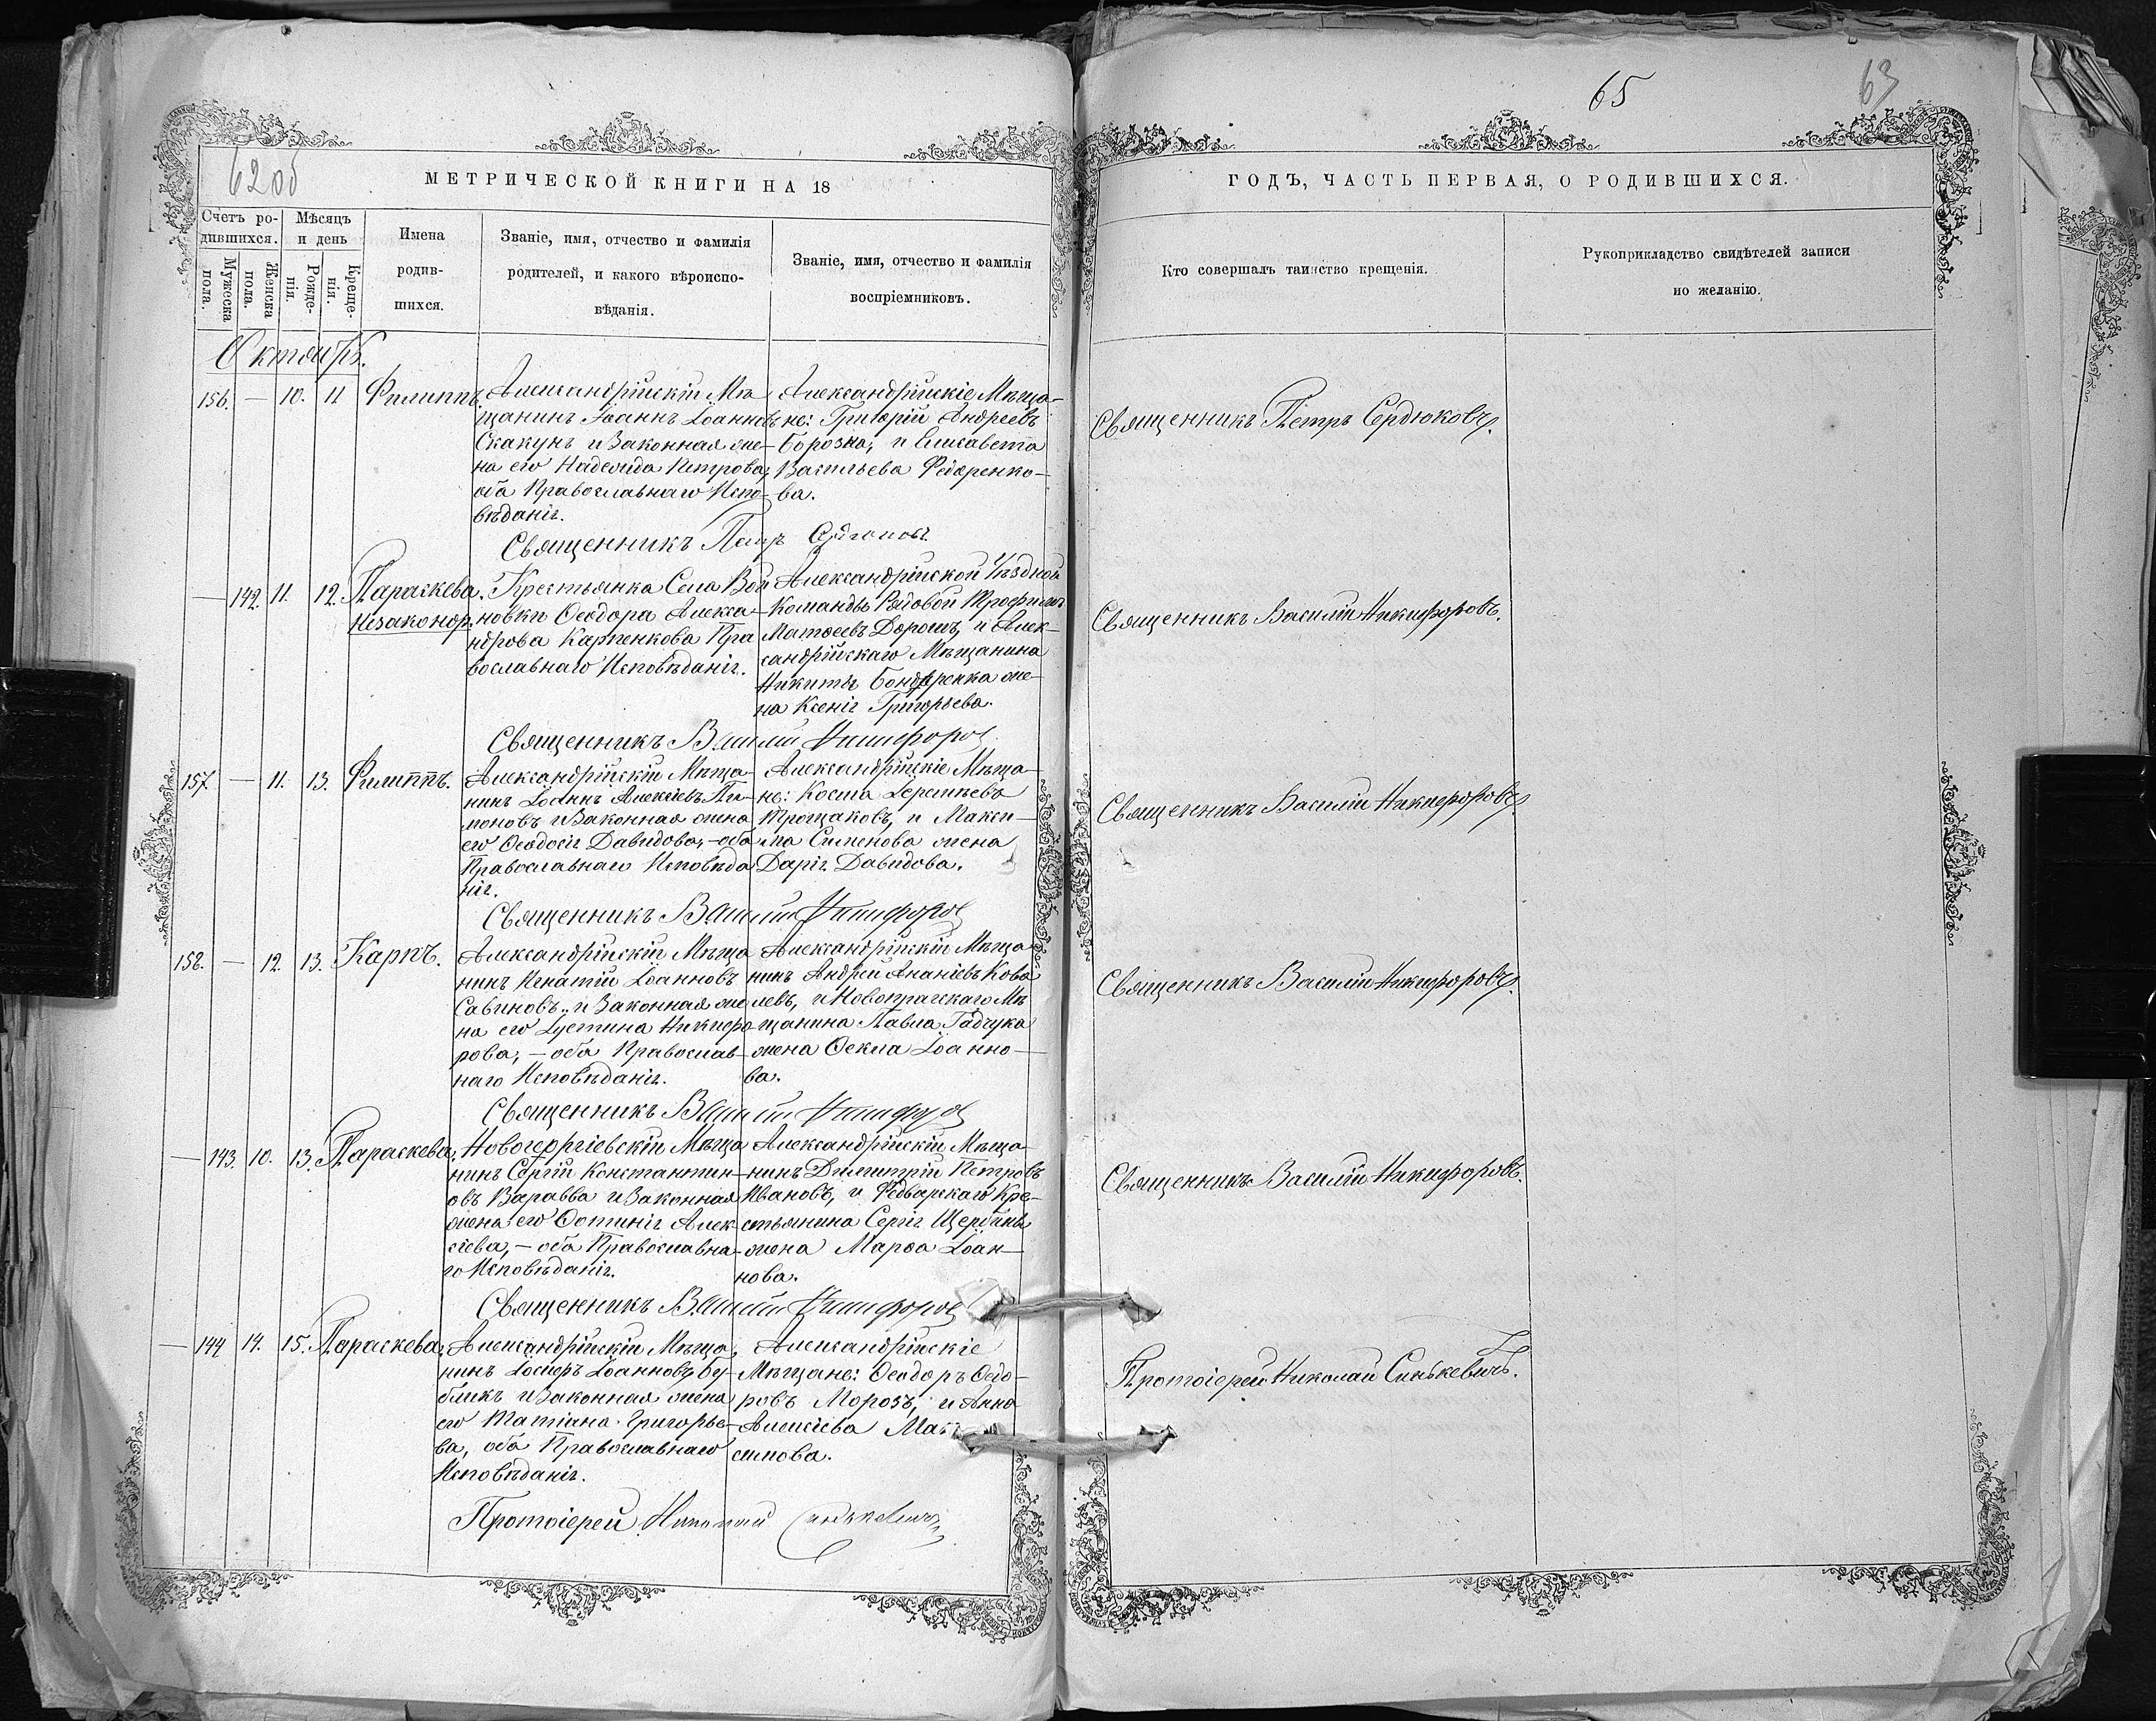 65
63
62об
МЕТРИЧЕСКОЙ КНИГИ НА 18
ГОДЪ, ЧАСТЬ ПЕРВАЯ, О РОДИВШИХСЯ.
Счетъ ро-
дившихся.
Мужеска
пола.
Женска
пола.
Мѣсяцъ
и день
Рожде-
нія.
Креще-
нія.
Имена
родив-
шихся.
Званіе, имя, отчество и фамилія
родителей, и какого вѣроиспо-
вѣданія.
Званіе, имя, отчество и фамилія
воспріемниковъ.
Кто совершалъ таинство крещенія.
Рукоприкладство свидѣтелей записи
по желанію.
Октябрь.
156. — 10. 11 Филиппъ.
Александрійскій Мѣ
щанинъ Іоаннъ Іоанновъ
Скакунъ и Законная же-
на его Надежда Петрова,
оба Православнаго Испо-
вѣданія.
Александрійскіе Мѣща-
не: Григорій Андреевъ
Борозна, и Елисавета
Васильева Федоренко-
ва.
Священникъ Петръ Сердюковъ.
Священникъ Петръ Сердюковъ
— 142. 11. 12. Параскева.
Незаконор.
Крестьянка Села Вой
новки Ѳеодора Алекса-
ндрова Карпенкова Пра
вославнаго Исповѣданія.
Александрійской Уѣздной
Команды Рядовой Трофимъ
Матѳеевъ Дорошъ, и Алек-
сандрійскаго Мѣщанина
Никиты Бондаренка же-
на Ксенія Григорьева.
Священникъ Василій Никифоровъ.
Священникъ Василій Никифоровъ
157. — 11. 13. Филиппъ.
Александрійскій Мѣща-
нинъ Іоаннъ Алексіевъ Ти-
моновъ и Законная жена
его Ѳеодосія Давидова, – оба
Православнаго Исповѣда
нія.
Александрійскіе Мѣща-
не: Косма Іереміевъ
Трощаковъ, и Макси-
ма Сименова жена
Дарія Давидова.
Священникъ Василій Никифоровъ.
Священникъ Василій Никифоровъ
158. — 12. 13. Карпъ.
Александрійскій Мѣща
нинъ Игнатій Іоанновъ
Савиновъ, и Законная же
на его Іустина Никифо
рова, – оба Православ-
наго Исповѣданія.
Александрійскій Мѣща
нинъ Андрей Ананіевъ Кова
левъ, и Новопрагскаго Мѣ
щанина Павла Гадчука
жена Ѳекла Іоанно-
ва.
Священникъ Василій Никифоровъ.
Священникъ Василій Никифоровъ
— 143. 10. 13. Параскева.
Новогеоргіевскій Мѣща
нинъ Сергій Константин-
овъ Варавва и Законная
жена его Фотинія Алек
сіева, – оба Православна-
го Исповѣданія.
Александрійскій Мѣща-
нинъ Димитрій Петровъ
Ивановъ, и Федварскаго Кре-
стьянина Сергія Щербины
жена Марѳа Іоан-
нова.
Священникъ Василій Никифоровъ.
Священникъ Василій Никифоровъ
— 144 14. 15. Параскева.
Александрійскій Мѣща,
нинъ Іосифъ Іоанновъ Бу-
бликъ и Законная жена
его Татіана Григорье-
ва, оба Православнаго
Исповѣданія.
Александрійскіе
Мѣщане: Ѳеодоръ Ѳедо-
ровъ Морозъ, и Анна
Алексіева Мак
симова.
Протоіерей Николай Синькевичъ.
Протоіерей Николай Синькевичъ